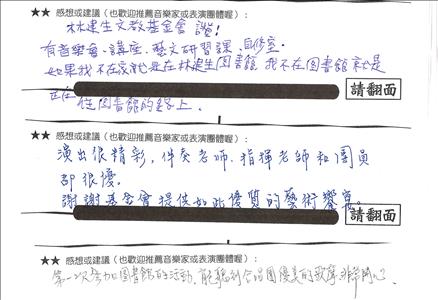 ★★ 感想或建議（也歡迎推薦音樂家或表演團體喔）：
林建生文教基金會 讚!
有音樂會、講座、藝文研習課、自修室。
如果我不在家就是在林建生圖書館 我不在圖書館就是
正在 往圖書館的路上.
請翻面
★★ 感想或建議（也歡迎推薦音樂家或表演團體喔）：
演出很精彩，伴奏老師、指揮老師和團員
都很優。
謝謝基金會提供如此優質的藝術饗宴。
請翻面
★★ 感想或建議（也歡迎推薦音樂家或表演團體喔）：
第一次參加圖書館的活動，能聽到合唱團優美的歌聲，非常開心.